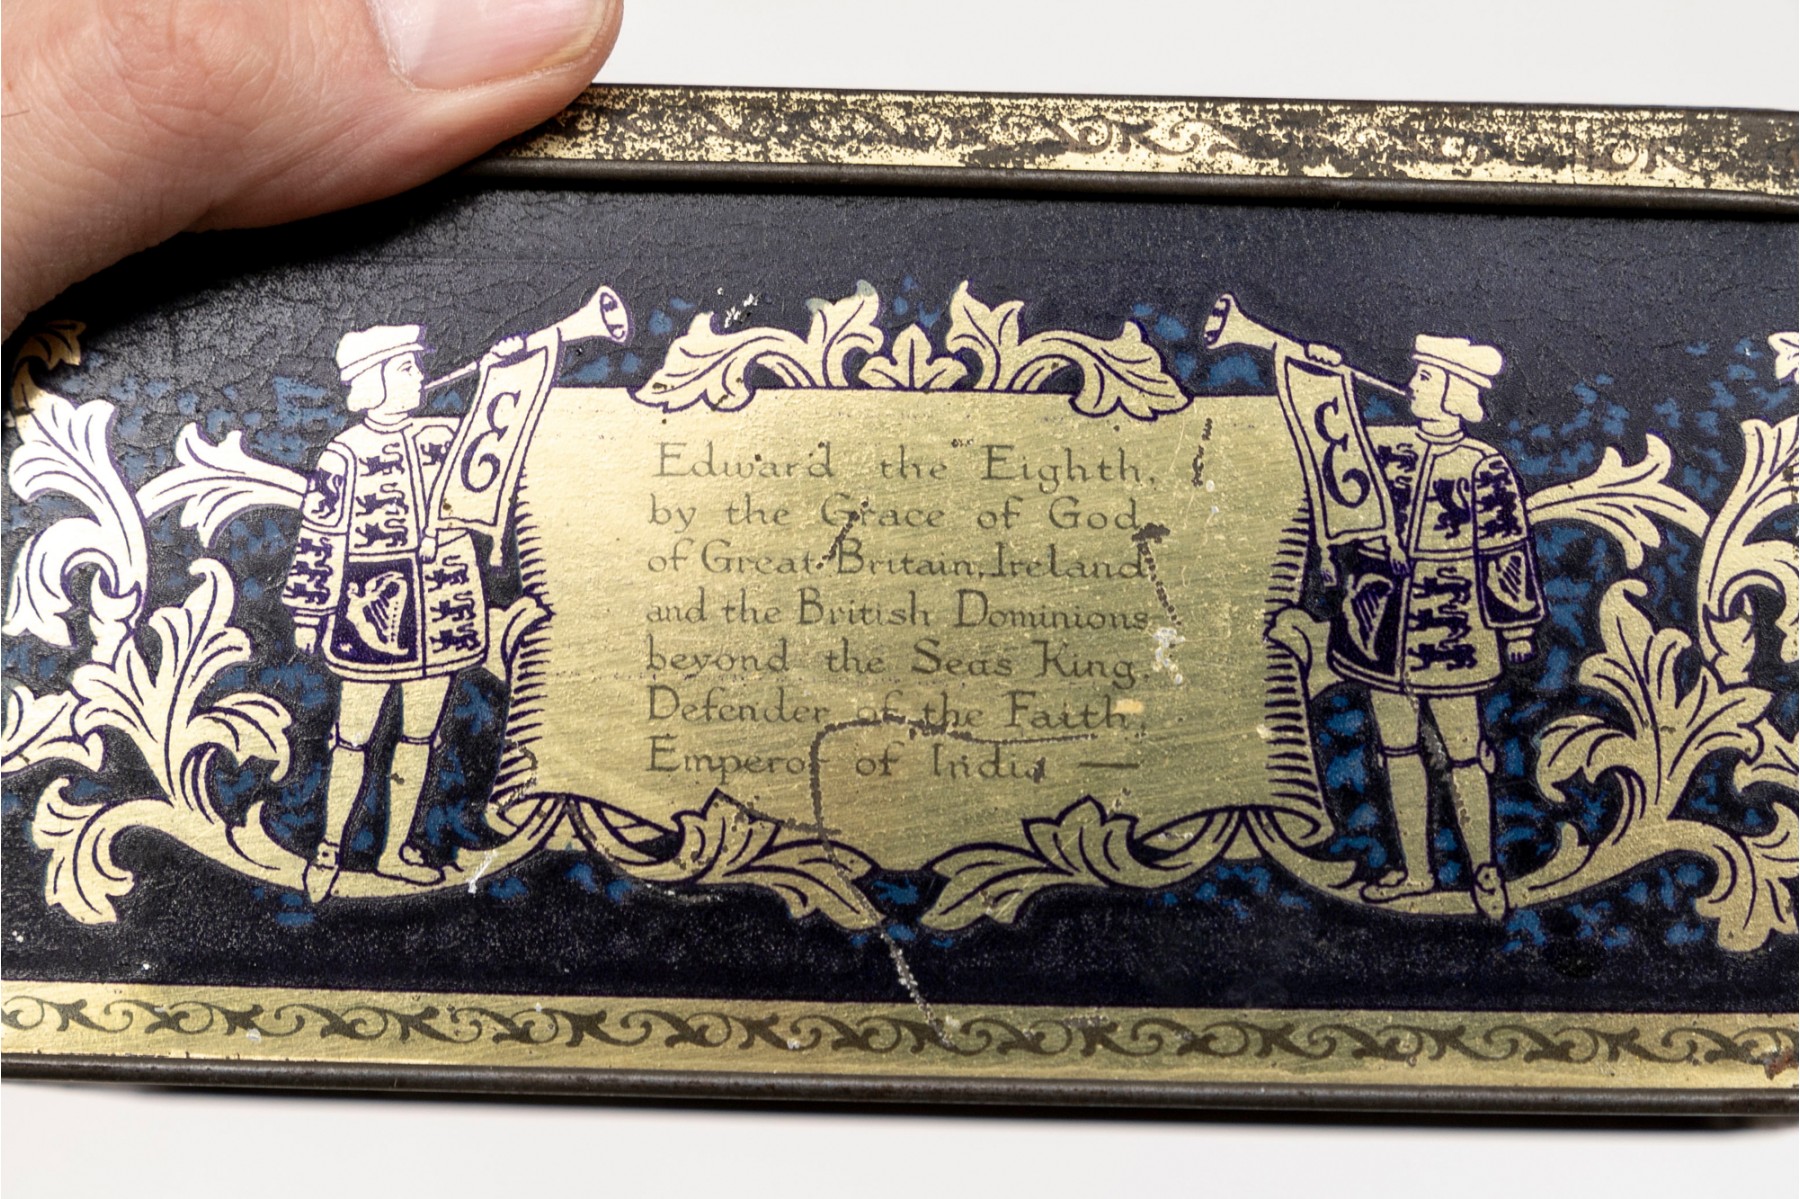 E
E
Edward the Eighth,
by the Grace of God,
of Great Britain, Ireland
and the British Dominions
beyond the Seas King,
Defender of the Faith,
Emperor of India —